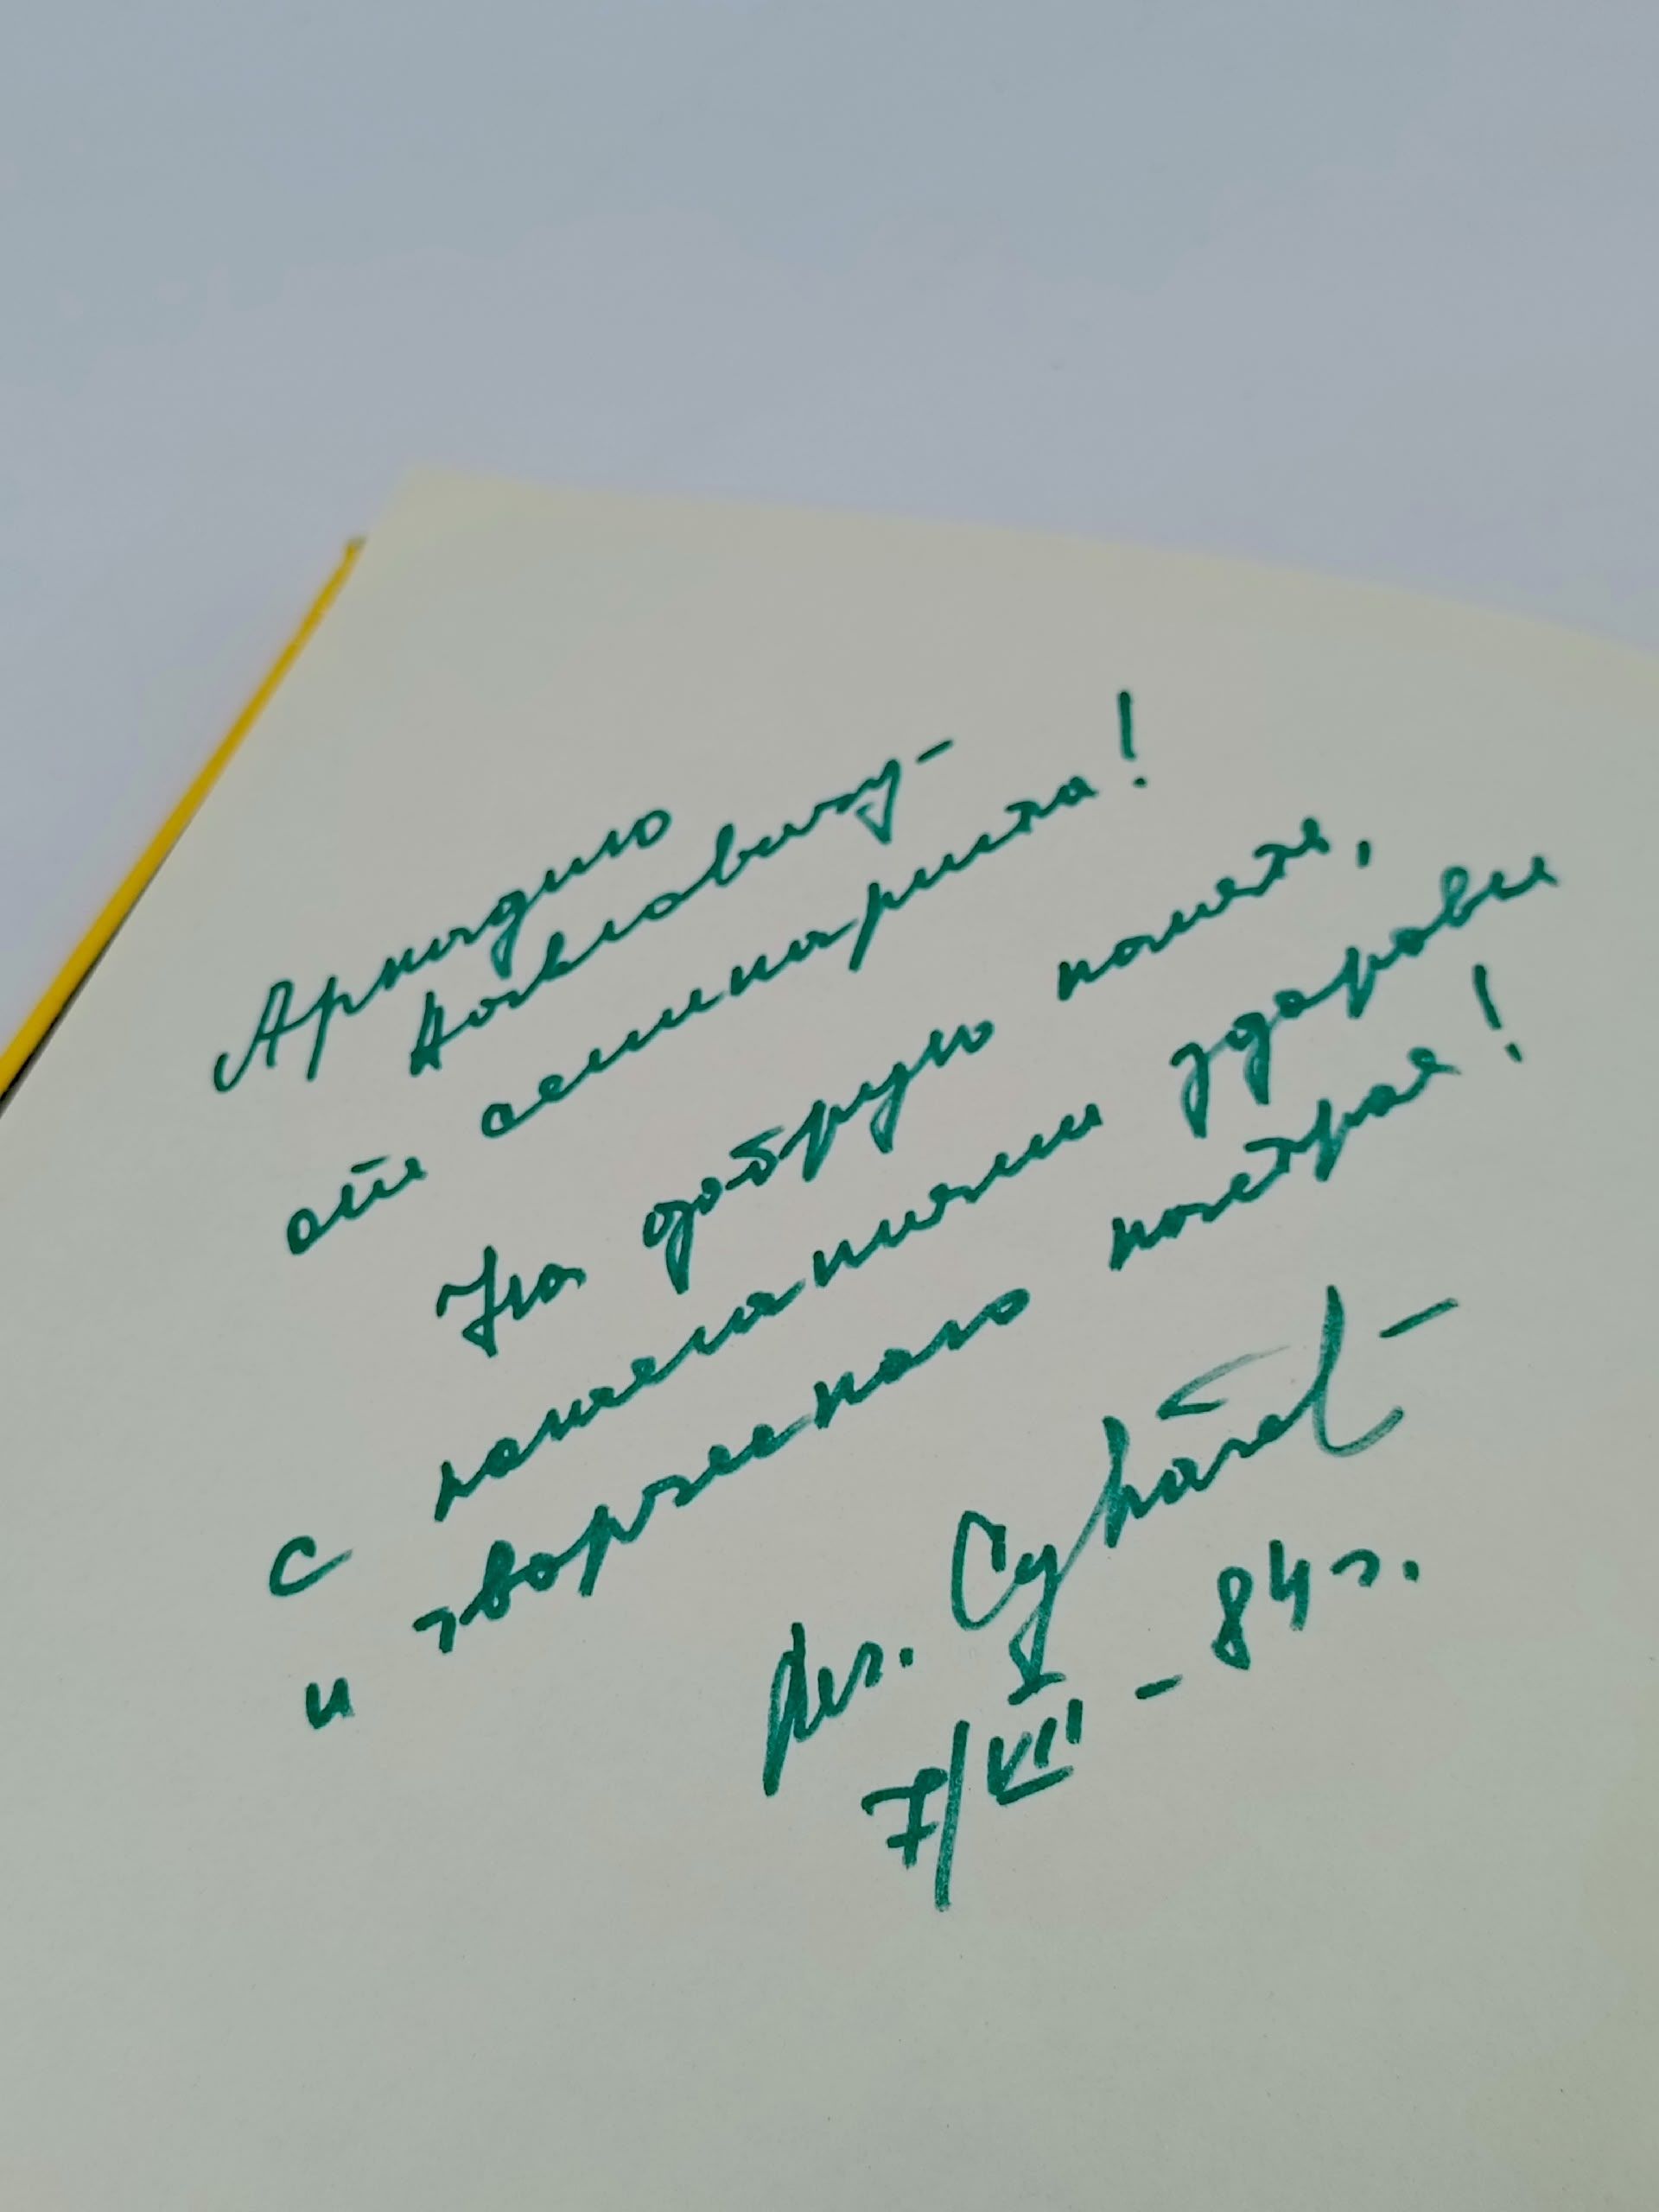 Аркадию
Львовичу –
от семинариста!
На добрую память,
с пожеланиями здоровья
и творческого настроя!
7/VII – 84 г.